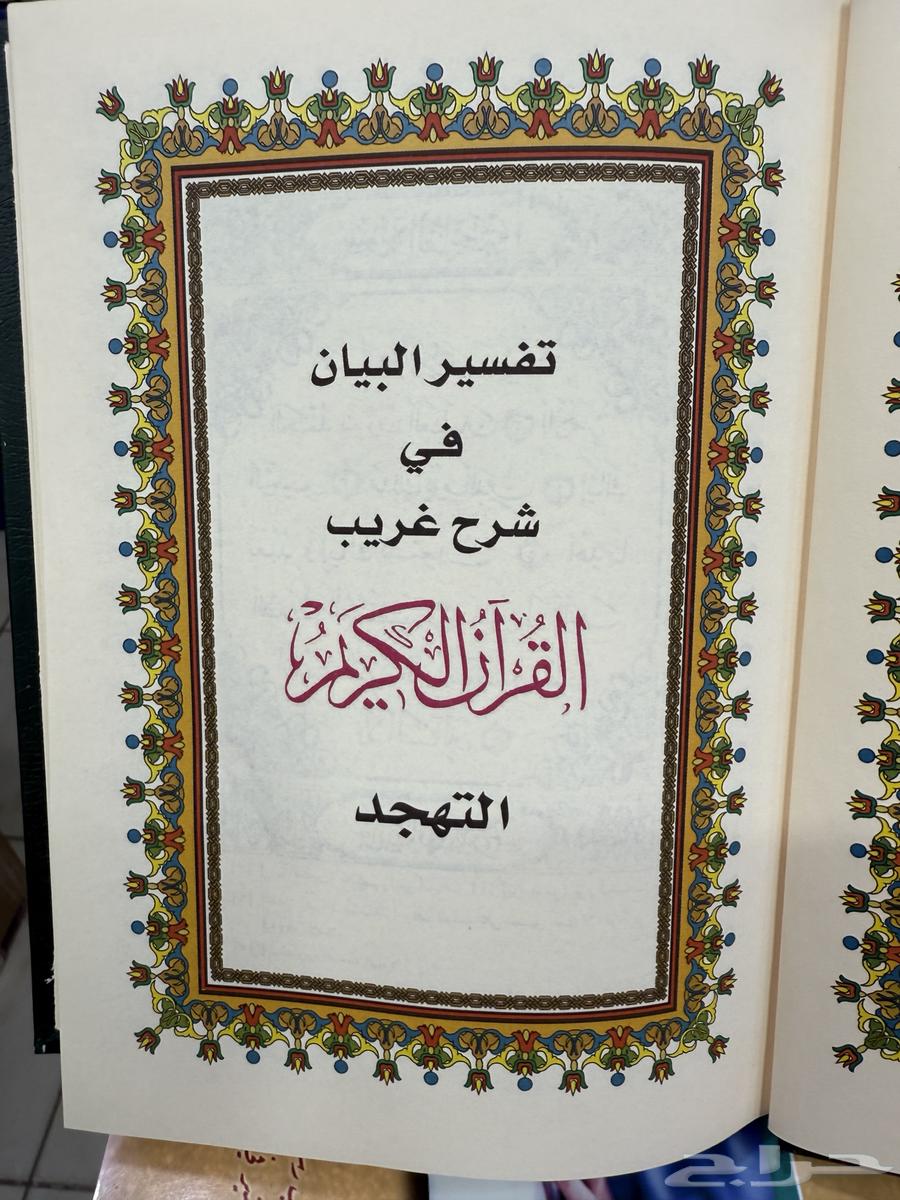 تفسير البيان
في
شرح غريب
القرآن الكريم
التهجد
حراج